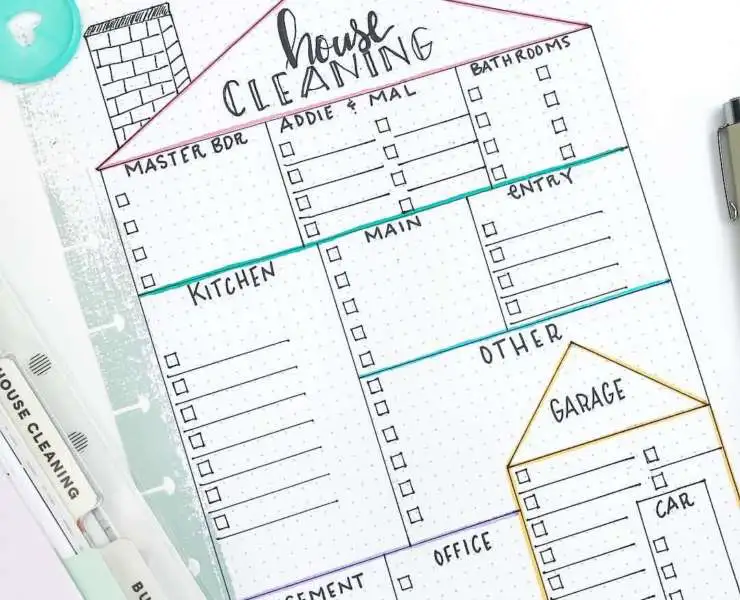 house
CLEANING
MASTER BDR
ADDIE & MAL
BATHROOMS
KITCHEN
MAIN
ENTRY
OTHER
GARAGE
CAR
OFFICE
HOUSE CLEANING